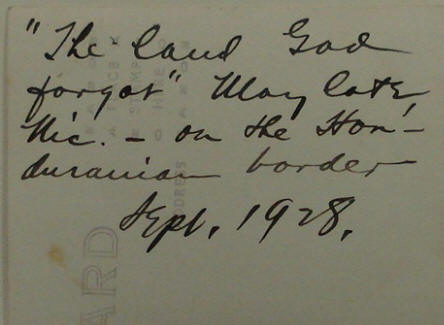 "The land God
forgot"
Nic. – on the Hon-
duranian border
Sept. 1928.
ARD